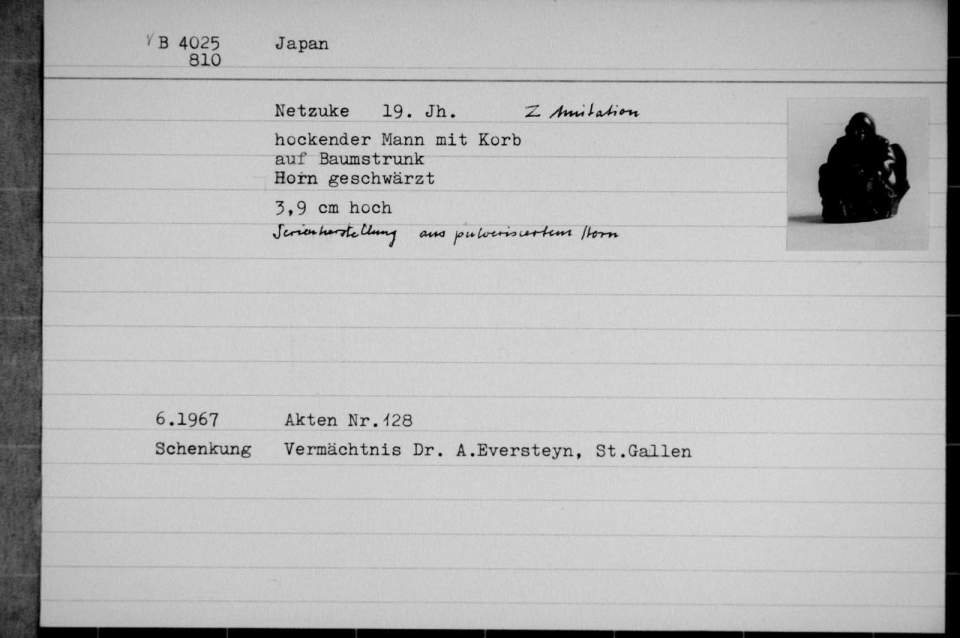 B 4025 Japan
810
Netzuke 19. Jh. Imitation
hockender Mann mit Korb
auf Baumstrunk
Horn geschwärzt
3,9 cm hoch
Serienherstellung aus pulverisiertem Horn
6.1967 Akten Nr.128
Schenkung Vermächtnis Dr. A.Eversteyn, St.Gallen